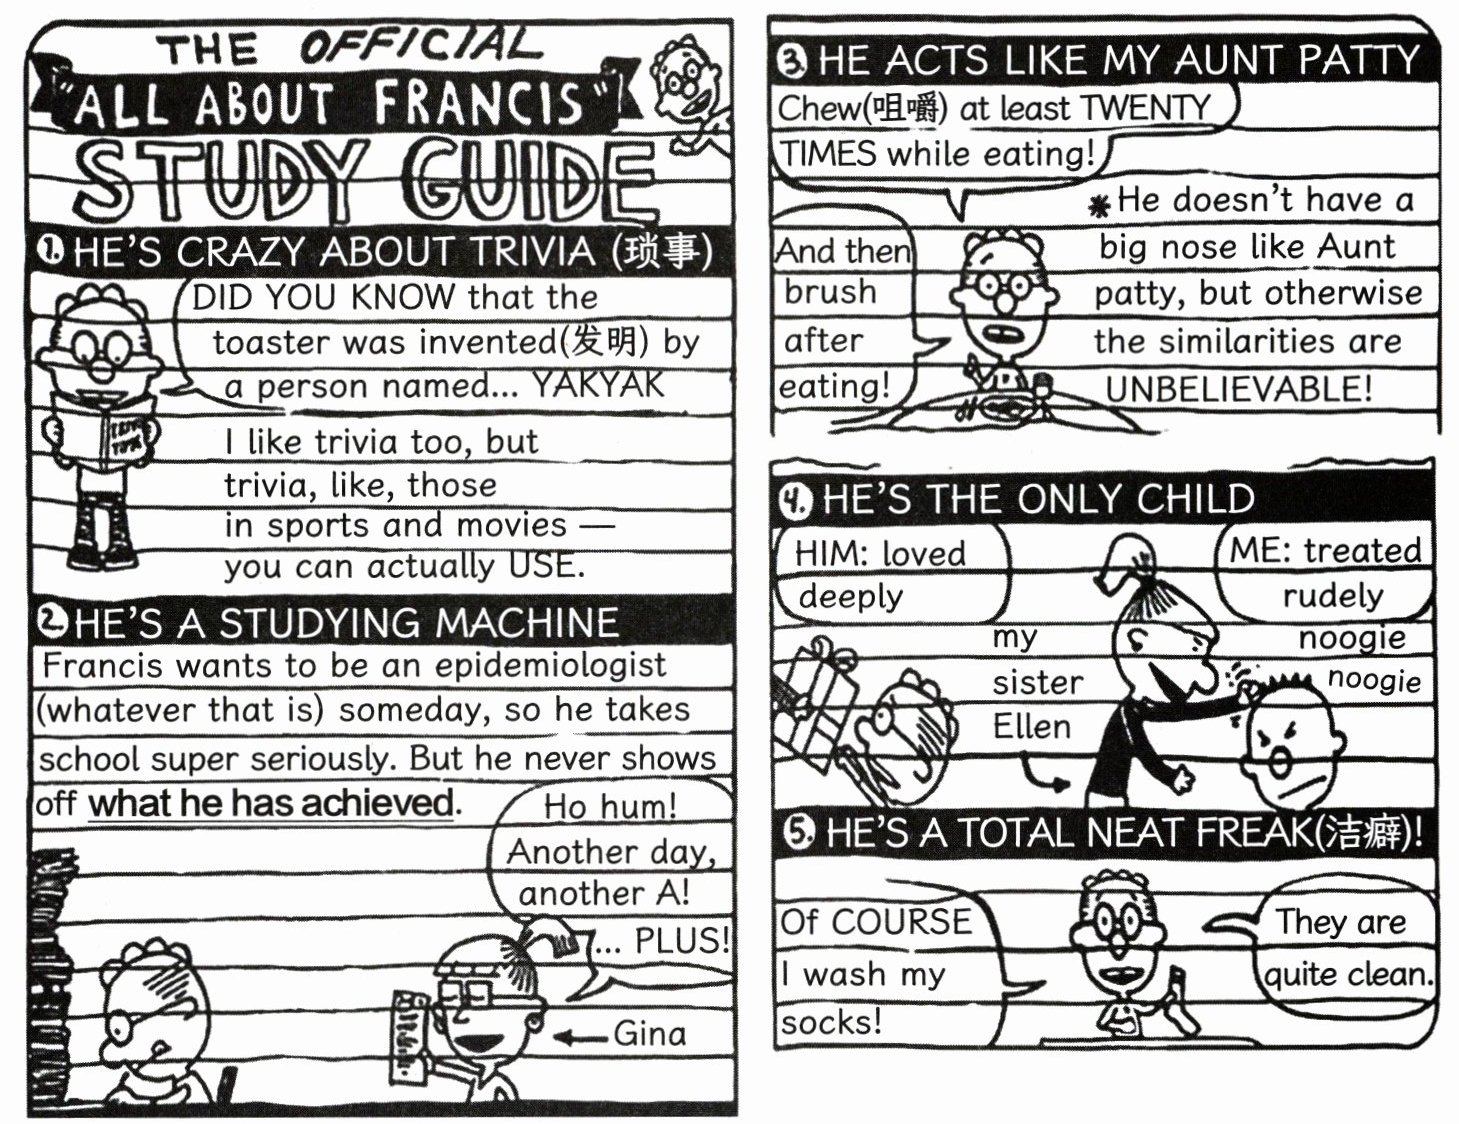 THE OFFICIAL
"ALL ABOUT FRANCIS"
STUDY GUIDE
1. HE'S CRAZY ABOUT TRIVIA (琐事)
DID YOU KNOW that the
toaster was invented(发明) by
a person named... YAKYAK
I like trivia too, but
trivia, like, those
in sports and movies —
you can actually USE.
2. HE'S A STUDYING MACHINE
Francis wants to be an epidemiologist
(whatever that is) someday, so he takes
school super seriously. But he never shows
off what he has achieved.
Ho hum!
Another day,
another A!
... PLUS!
Gina
3. HE ACTS LIKE MY AUNT PATTY
Chew(咀嚼) at least TWENTY
TIMES while eating!
And then
brush
after
eating!
*He doesn't have a
big nose like Aunt
patty, but otherwise
the similarities are
UNBELIEVABLE!
4. HE'S THE ONLY CHILD
HIM: loved
deeply
ME: treated
rudely
my
sister
Ellen
noogie
noogie
5. HE'S A TOTAL NEAT FREAK(洁癖)!
Of COURSE
I wash my
socks!
They are
quite clean.